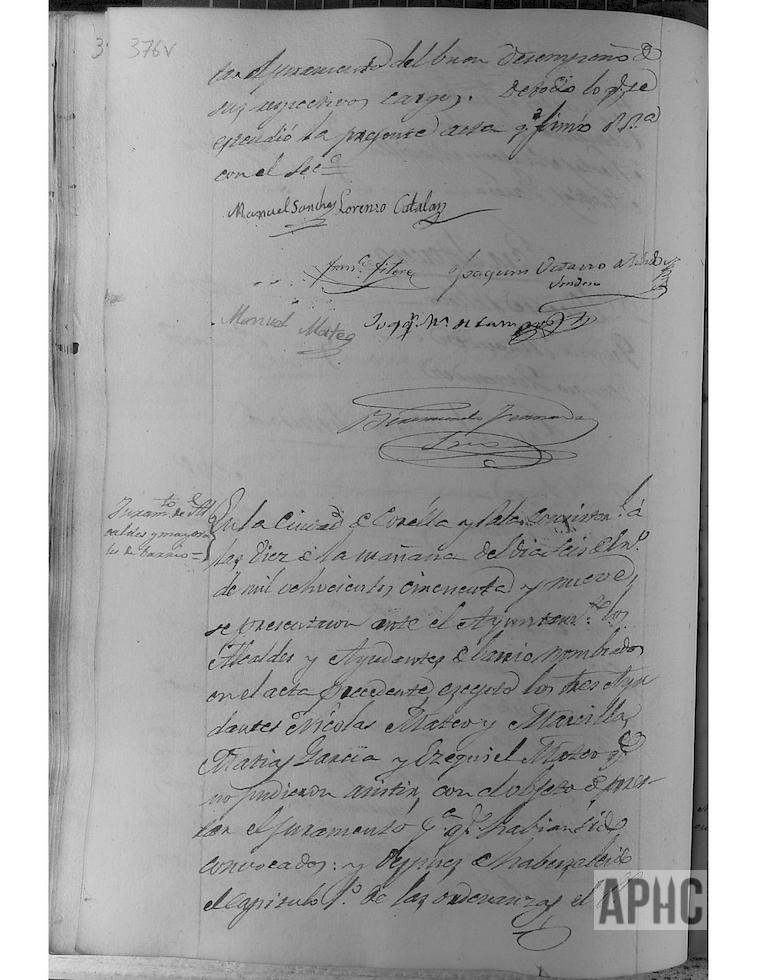 3 376v
tar el juramento del buen desempeño de
sus respectivos cargos. De todo lo q.e se
estendió la presente acta q.e firmó S.S.a
con el Sec.o
Manuel Sanchez Lorenzo Catalan
Fran.co Fitero Joaquin Octavio de Toledo
Sindico
Manuel Mateo Joaq.n M.a
Bienvenido
Juram.to de Al
caldes y mayora
les de barrio =
En la Ciudad de Corella y Sala Consistor.l á
las diez de la mañana del dia seis de En.o
de mil ochocientos cincuenta y nueve,
se presentaron ante el Ayuntam.to los
Alcaldes y Ayudantes de barrio nombrados
en el acta precedente, excepto los tres Ayu
dantes Nicolas Mateo y Marcilla,
Matias Garcia y Ezequiel Mateo q.e
no pudieron asistir, con el objeto de pres-
tar el juramento p.a q.e habian sido
convocados: y despues de haberse leido
el Capitulo 1.o de las ordenanzas el
APHC